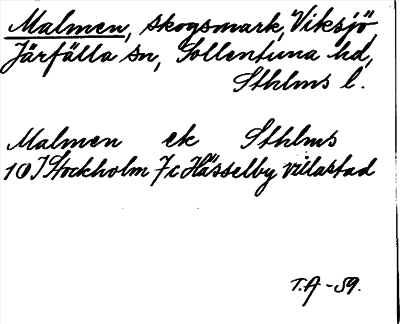 Malmen, skogsmark, Viksjö
Järfälla sn, Sollentuna hd,
Sthlms l.
Malmen ek Sthlms
10 I Stockholm 7c Hässelby villastad
T.A -59.